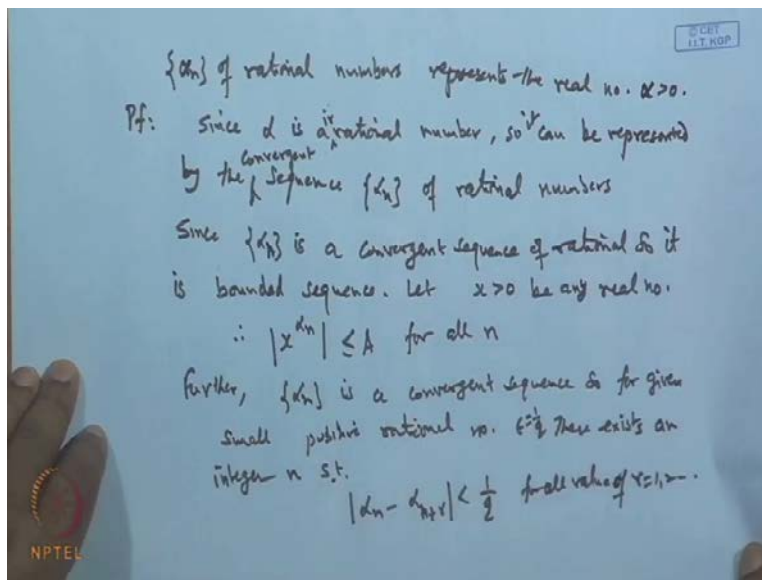 © CET
I.I.T. KGP
{αn} of rational numbers represents the real no. α>0.
Pf: Since α is a irrational number, so it can be represented
by the convergent sequence {αn} of rational numbers
Since {αn} is a convergent sequence of rational so it
is bounded sequence. Let x>0 be any real no.
∴ |x^{αn}| ≤ A for all n
Further, {αn} is a convergent sequence so for given
small positive rational no. ε=1/q There exists an
integer n s.t.
|αn - αn+r| < 1/q for all value of r=1,2---.
NPTEL